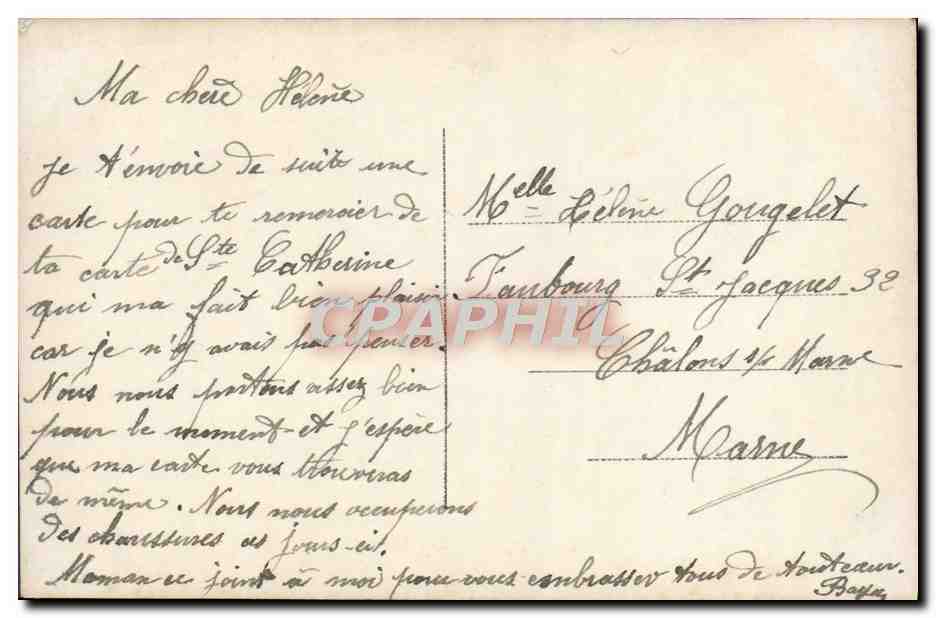 Ma chère Hélène
je t'envoie de suite une
carte pour te remercier de
ta carte de Ste Catherine
qui ma fait bien plaisir
car je n'y avais pas penser.
Nous nous portons assez bien
pour le moment et j'espère
que ma carte vous trouveras
de même. Nous nous occuperons
des chaussures ces jours-ci.
Maman ce joint à moi pour vous embrasser tous de tout cœur.
Melle Hélène Gougelet
Faubourg St Jacques 32
Châlons s/ Marne
Marne
CPAPHIL